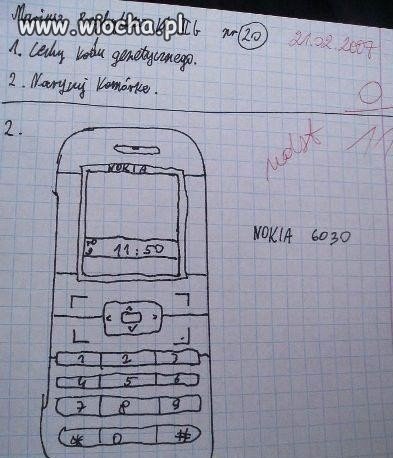 www.wiocha.pl
Mariusz
nr 20 21.02.2007
1. Cechy kodu genetycznego.
2. Narysuj komórkę.
0
2.
ndst
NOKIA
NOKIA 6030
11:50
1 2 3
4 5 6
7 8 9
* 0 #